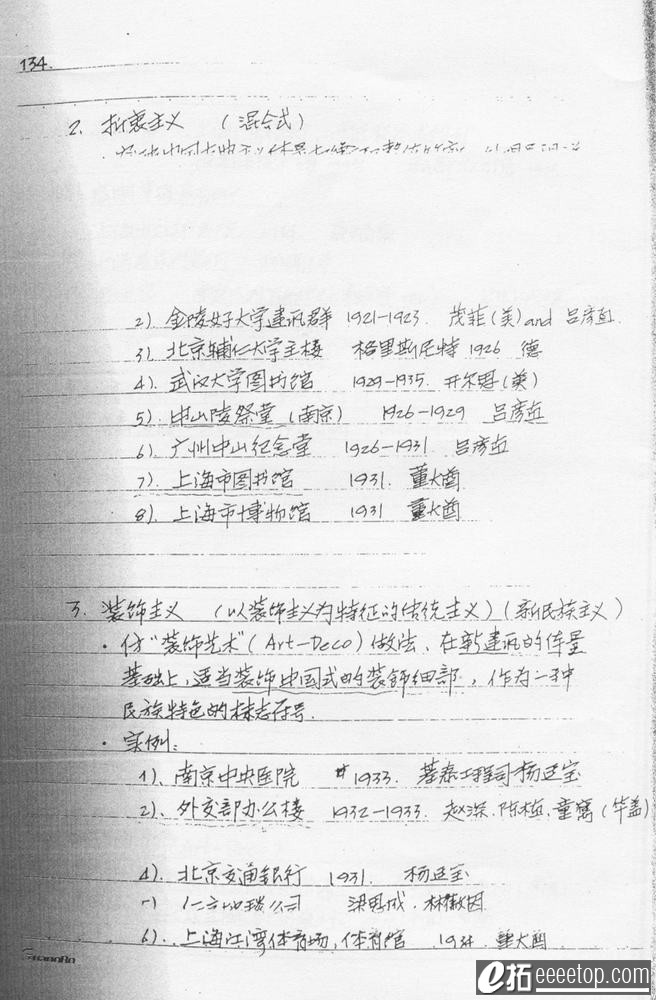 134.
2. 折衷主义 (混合式)
2). 金陵女子大学建筑群 1921-1923. 茂菲(美)and 吕彦直
3). 北京辅仁大学主楼 格里斯尼特 1926 德
4). 武汉大学图书馆 1929-1935. 开尔思(美)
5). 中山陵祭堂(南京) 1926-1929 吕彦直
6). 广州中山纪念堂 1926-1931 吕彦直
7). 上海市图书馆 1931. 董大酉
8). 上海市博物馆 1931 董大酉
3. 装饰主义 (以装饰主义为特征的传统主义)(新民族主义)
· 仿"装饰艺术"(Art-Deco)做法、在新建筑的体量
基础上,适当装饰中国式的装饰细部,作为一种
民族特色的标志符号.
· 实例:
1)、南京中央医院 1933. 基泰工程司杨廷宝
2)、外交部办公楼 1932-1933. 赵深、陈植、童寯(华盖)
4). 北京交通银行 1931. 杨廷宝
公司 梁思成、林徽因
6). 上海江湾体育场,体育馆 1934. 董大酉
GuangBo
e拓 eeeetop.com